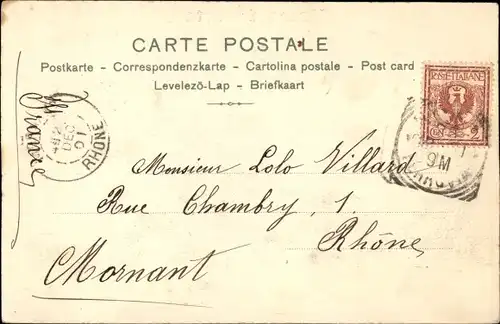 CARTE POSTALE
Postkarte - Correspondenzkarte - Cartolina postale - Post card
Levelező-Lap - Briefkaart
France
DEC
01
RHÔNE
POSTE ITALIANE
2
9M
Monsieur Lolo Villard
Rue Chambry, 1.
Rhône
Mornant